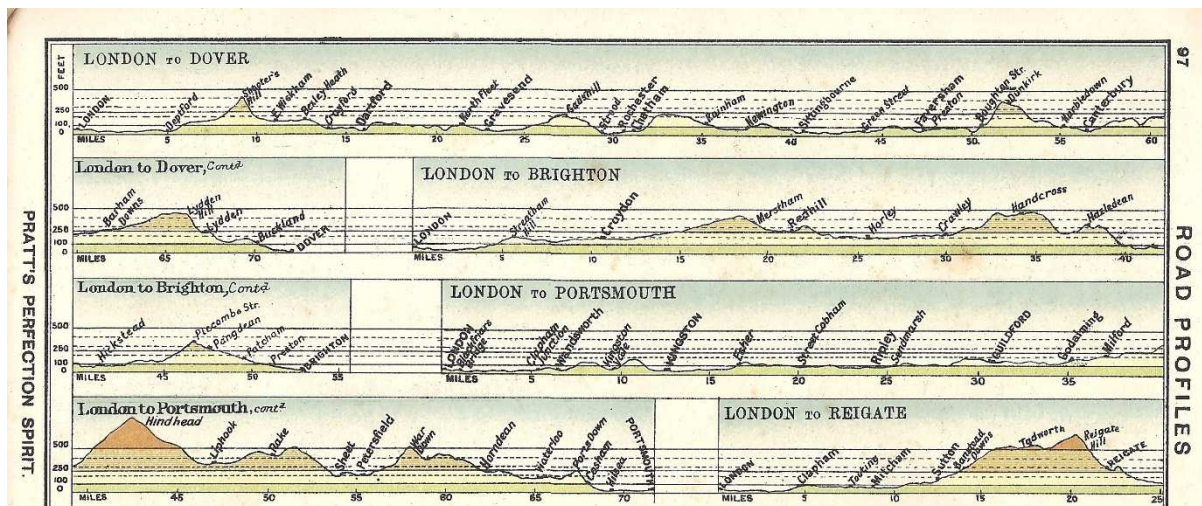 97
ROAD PROFILES
PRATT'S PERFECTION SPIRIT.
LONDON TO DOVER
FEET
500
250
100
0
LONDON
Deptford
Shooter's Hill
E. Wickham
Bexley Heath
Crayford
Dartford
North Fleet
Gravesend
Gadshill
Strood
Rochester
Chatham
Rainham
Newington
Sittingbourne
Green Street
Faversham
Preston
Boughton Str.
Dunkirk
Harbledown
Canterbury
MILES 5 10 15 20 25 30 35 40 45 50 55 60
London to Dover, Contd
500
250
100
0
Barham Downs
Lydden Hill
Lydden
Buckland
DOVER
MILES 65 70
LONDON TO BRIGHTON
LONDON
Streatham Hill
Croydon
Merstham
Redhill
Horley
Crawley
Handcross
Hazledean
MILES 5 10 15 20 25 30 35 40
London to Brighton, Contd
500
250
100
0
Hickstead
Piecombe Str.
Pangdean
Patcham
Preston
BRIGHTON
MILES 45 50 55
LONDON TO PORTSMOUTH
LONDON
Bridge
Clapham Junction
Wandsworth
Kingston Vale
KINGSTON
Esher
Street Cobham
Ripley
Sendmarsh
GUILDFORD
Godalming
Milford
MILES 5 10 15 20 25 30 35
London to Portsmouth, contd
500
250
100
0
Hindhead
Liphook
Rake
Sheet
Petersfield
War Down
Horndean
Waterloo
Portsdown
Cosham
Hilsea
PORTSMOUTH
MILES 45 50 55 60 65 70
LONDON TO REIGATE
LONDON
Clapham
Tooting
Mitcham
Sutton
Banstead Downs
Tadworth
Reigate Hill
REIGATE
MILES 5 10 15 20 25